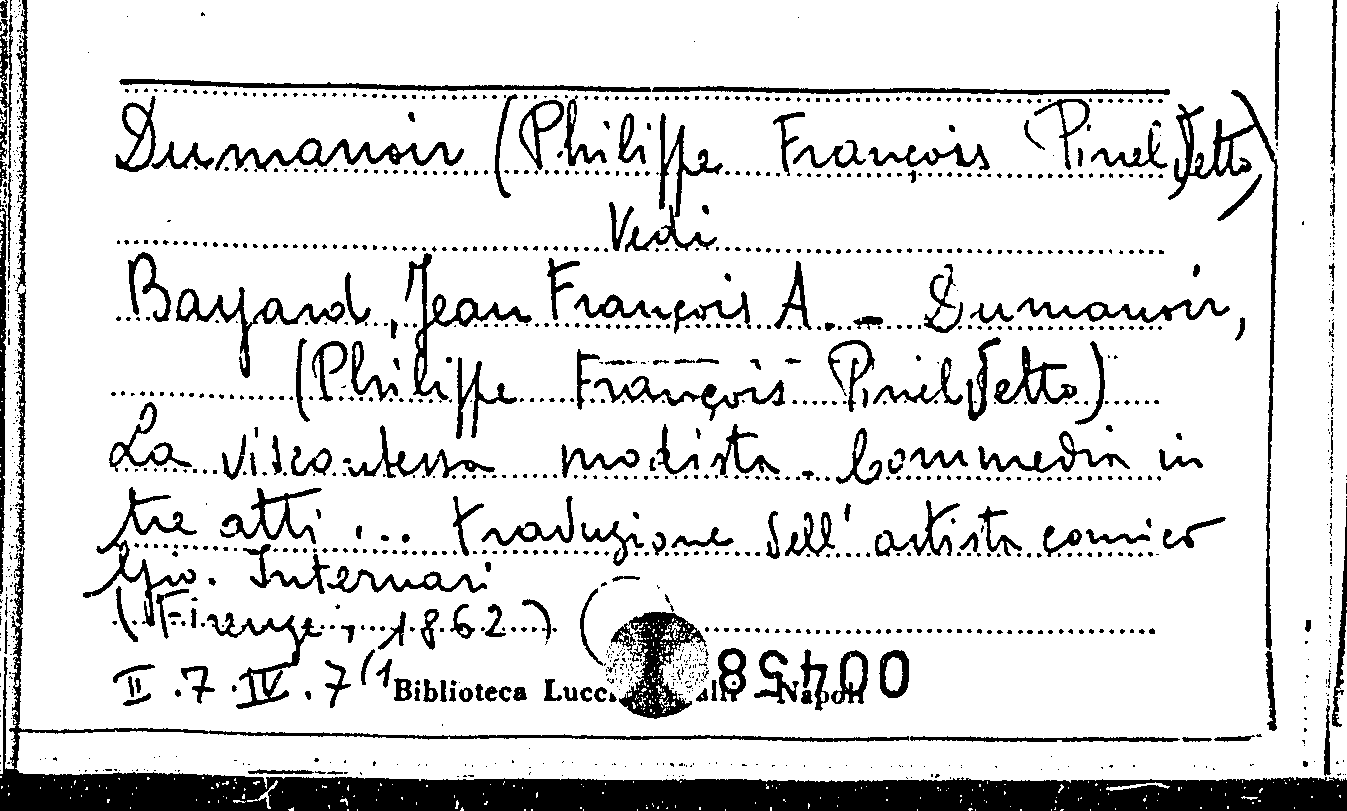 Dumanoir (Philippe François Pinel, detto)
Vedi
Bayard, Jean François A. - Dumanoir,
(Philippe François Pinel detto)
La viscontessa modista. Commedia in
tre atti ... traduzione dell' artista comico
Gio. Internari
(Firenze, 1862)
II.7.IV.7(1
Biblioteca Lucc Napoli
00458